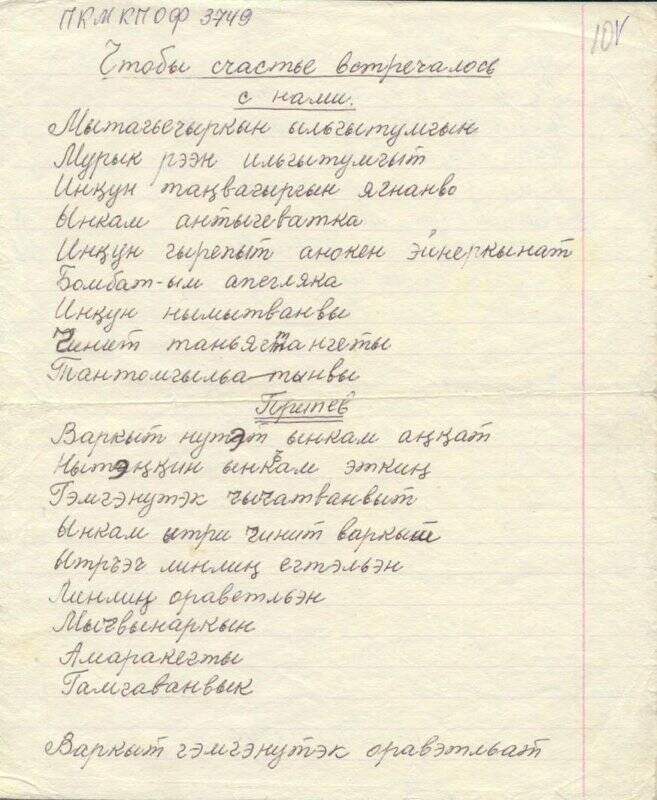 ПКМ КПОФ 3749
10г
Чтобы счастье встречалось
с нами.
Мытагъегыркын ылгытумгын
Мурык рээн илгытумгыт
Инӄун таӈвагыргын ягнанво
Ынкам антыгеватка
Инӄун гырепыт анокен эйнеркынат
Бомбат-ым апегляка
Инӄун нымытванвы
Чинит таньягтангеты
Тантомгыльатынвы
Припев
Варкыт нутэт ынкам аӈӄат
Нытэӈӄин ынкъам эткиӈ
Гэмгэнутэк чычатванвыт
Ынкам ытри чинит варкыт
Ытръэч линлиӈ егтэльэн
Линлиӈ ораветльэн
Мычвынаркын
Амаракегты
Гамгаванвык
Варкыт гэмгэнутэк оравэтльат